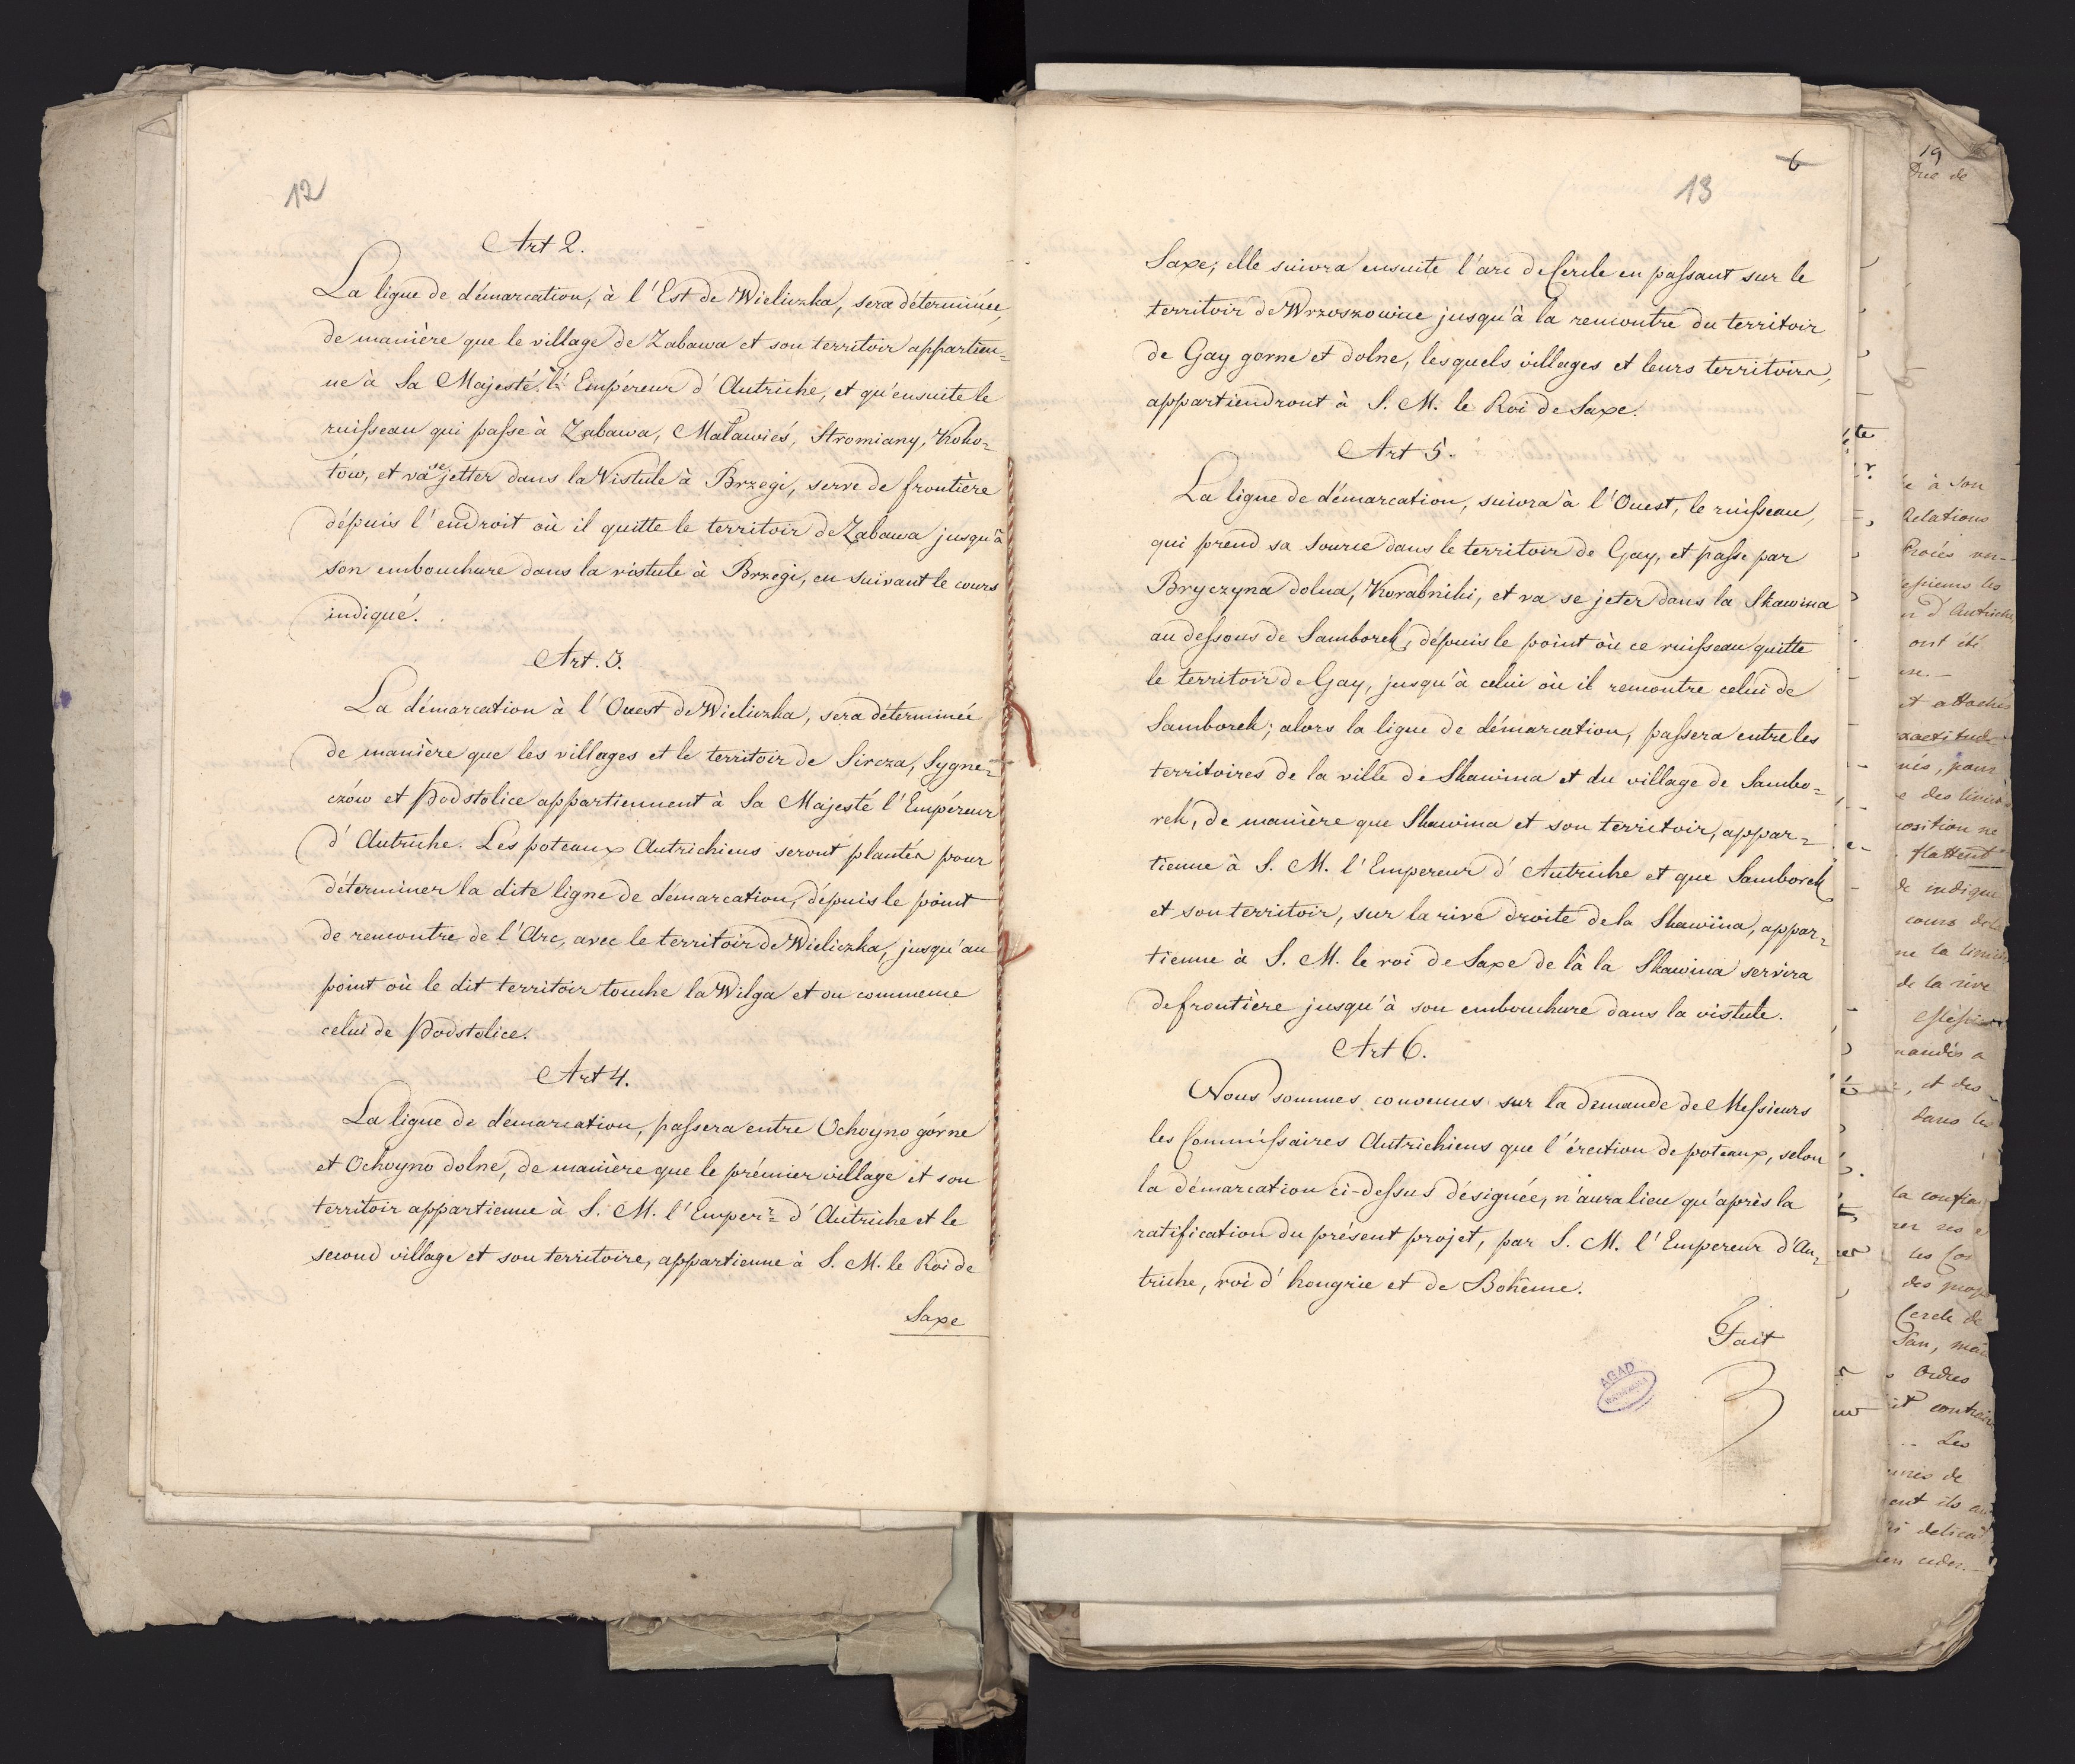 12
Art 2.
La ligne de démarcation, à l'Est de Wieliczka, sera déterminée,
de manière que le village de Zabawa et son territoir appartien=
ne à Sa Majesté l'Empéreur d'Autriche, et qu'ensuite le
ruisseau qui passe à Zabawa, Maławieś, Stromiany, Koko=
tów, et va se jetter dans la Vistule à Brzegi, serve de frontière
dépuis l'endroit où il quitte le territoir de Zabawa jusqu'à
son embouchure dans la vistule à Brzegi, en suivant le cours
indiqué.
Art. 3.
La démarcation à l'Ouest de Wieliczka, sera déterminée
de manière que les villages et le territoir de Sircza, Sygne=
czów et Podstolice appartiennent à Sa Majesté l'Empéreur
d'Autriche. Les poteaux Autrichiens seront plantés pour
déterminer la dite ligne de démarcation, dépuis le point
de rencontre de l'Arc, avec le territoir de Wieliczka, jusqu'au
point où le dit territoir touche la Wilga et ou commence
celui de Podstolice.
Art 4.
La ligne de démarcation, passera entre Ochoyno górne
et Ochoyno dolne, de manière que le prémier village et son
territoir appartienne à S. M. l'Emperr d'Autriche et le
second village et son territoire, appartienne à S. M. le Roi de
Saxe
6
13
Saxe; elle suivra ensuite l'arc de Cercle en passant sur le
territoir de Wrzoszowice jusqu'à la rencontre du territoir
de Gay gorne et dolne, lesquels villages et leurs territoirs,
appartiendront à S. M. le Roi de Saxe.
Art 5.
La ligne de démarcation, suivra à l'Ouest, le ruisseau,
qui prend sa source dans le territoir de Gay, et passe par
Bryczyna dolna, Korabniki, et va se jeter dans la Skawina
au dessous de Samborek, dépuis le point où ce ruisseau quitte
le territoir de Gay, jusqu'à celui où il rencontre celui de
Samborek; alors la ligne de démarcation, passera entre les
territoires de la ville de Skawina et du village de Sambo=
rek, de manière que Skawina et son territoir, appar=
tienne à S. M. l'Empereur d'Autriche et que Samborek
et son territoir, sur la rive droite de la Skawina, appar=
tienne à S. M. le roi de Saxe de là la Skawina servira
de frontière jusqu'à son embouchure dans la vistule.
Art 6.
Nous sommes convenus sur la demande de Messieurs
les Commissaires Autrichiens que l'érection de poteaux, selon
la démarcation ci-dessus désignée, n'aura lieu qu'après la
ratification du présent projet, par S. M. l'Empereur d'Au=
triche, roi d'hongrie et de Bohême.
Fait
AGAD
WARSZAWA
19
Duc de
à Son
Relations
Procès ver-
les
d'Autriche
ont été
et attachés
exactitude
cours de la
de la rive
, et des
dans les
la confia
les Co
des prop
Cercle de
San, mai
Ordres
Les